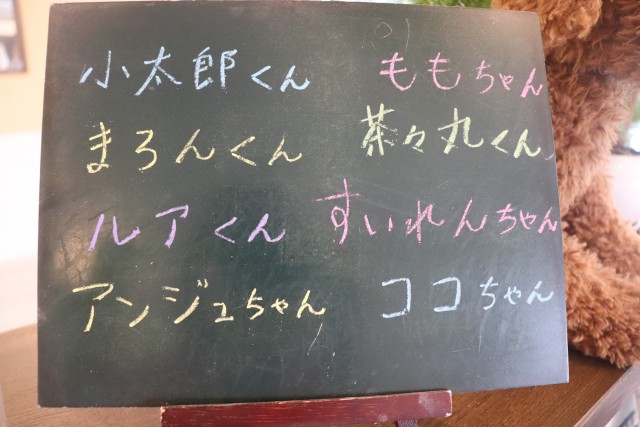 小太郎くん ももちゃん
まろんくん 茶々丸くん
ルアくん すいれんちゃん
アンジュちゃん ココちゃん